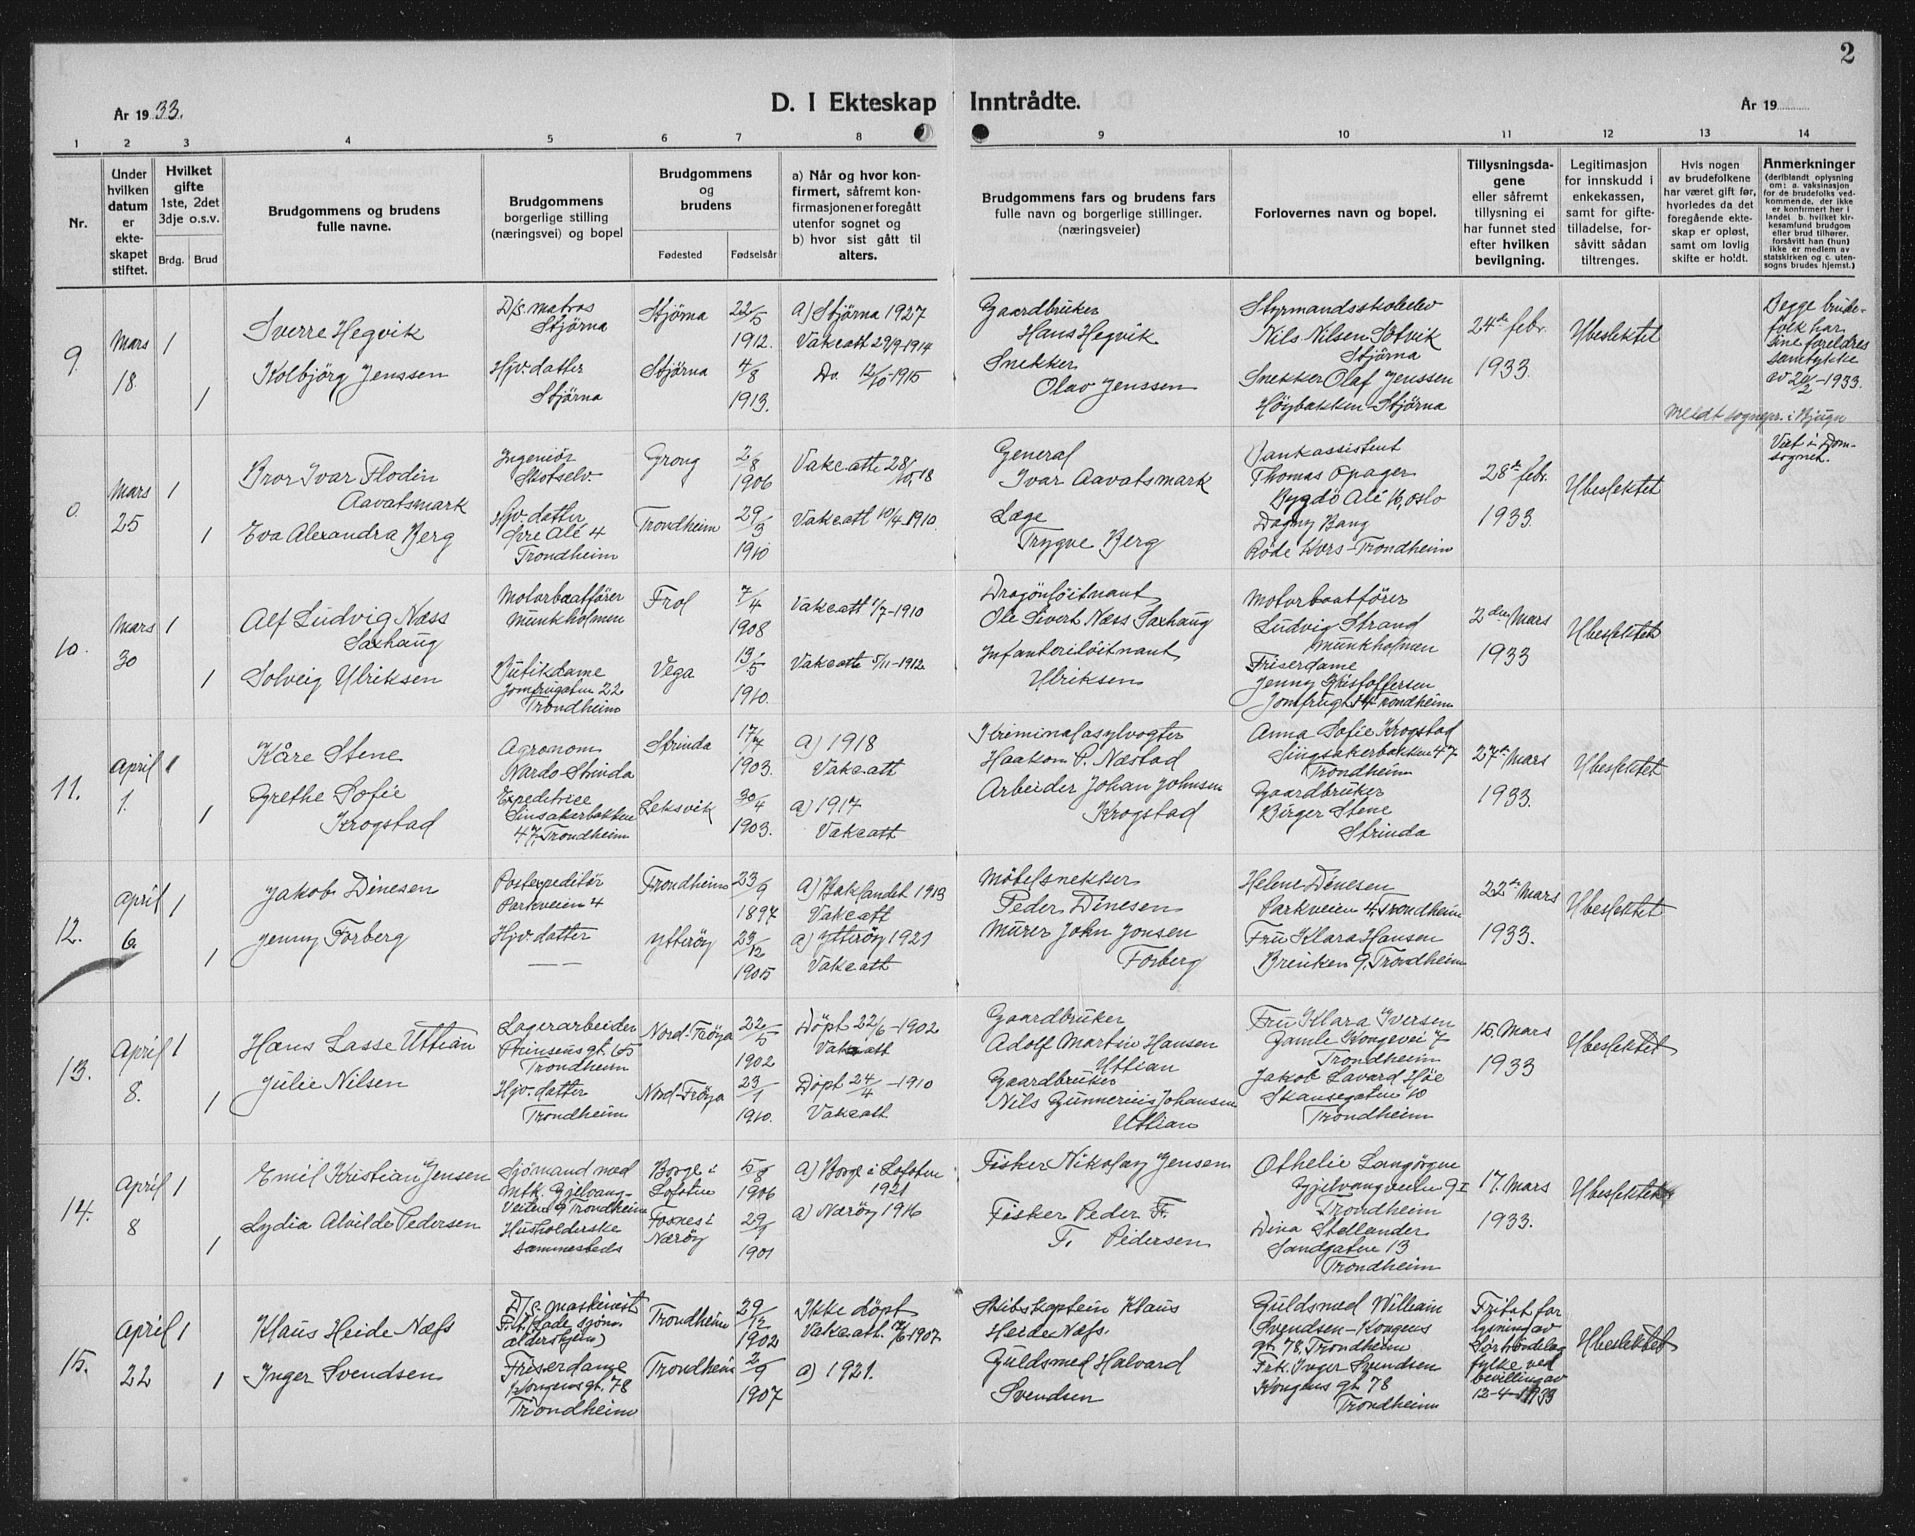 2
År 1933.
D. I Ekteskap Inntrådte.
År 19
1 2 3 4 5 6 7 8 9 10 11 12 13 14
Nr.
Under hvilken datum er ekteskapet stiftet.
Hvilket gifte 1ste, 2det 3dje o.s.v.
Brdg. Brud
Brudgommens og brudens fulle navne.
Brudgommens borgerlige stilling (næringsvei) og bopel
Brudgommens og brudens
Fødested Fødselsår
a) Når og hvor konfirmert, såfremt konfirmasjonen er foregått utenfor sognet og b) hvor sist gått til alters.
Brudgommens fars og brudens fars fulle navn og borgerlige stillinger. (næringsveier)
Forlovernes navn og bopel.
Tillysningsdagene eller såfremt tillysning ei har funnet sted efter hvilken bevilgning.
Legitimasjon for innskudd i enkekassen, samt for giftetilladelse, forsåvitt sådan tiltrenges.
Hvis nogen av brudefolkene har været gift før, hvorledes da det foregående ekteskap er opløst, samt om lovlig skifte er holdt.
Anmerkninger (deriblandt oplysning om: a. vaksinasjon for de brudefolks vedkommende, der ikke er konfirmert her i landet b. hvilket kirkesamfund brudgom eller brud tilhører, forsåvitt han (hun) ikke er medlem av statskirken og c. utensogns brudes hjemst.)
9. Mars 18. 1 1
Sverre Hegvik
Kolbjörg Jenssen
D/s. matros
Stjørna
Hjv. datter
Stjørna
Stjørna 22/5 1912.
Stjørna 4/8 1913.
a) Stjørna 1927
Vakcatt 29/9-1914
Do. 12/10-1915
Gaardbruker
Hans Hegvik
Snekker
Olav Jenssen
Styrmandsskoleelev
Nils Nilsen Sötvik
Stjørna
Snekker Olaf Jenssen
Høybakken-Stjørna
24de febr.
1933.
Ubeslektet
Begge brudefolk har
sine foreldres
samtykke
av 20/2-1933.
Meldt sognepr. i Bjugn
0. Mars 25 1 1
Bror Ivar Flodin
Aavatsmark
Eva Alexandra Berg
Ingeniör
Skotselv.
Hjv. datter
Övre Alé 4
Trondheim
Grong 2/8 1906
Trondheim 29/9 1910
Vakcatt 28/10 18
Vakcatt 10/4 1910.
General
Ivar Aavatsmark
Læge
Trygve Berg
Bankassistent
Thomas Opager
Bygdö Alé 16, Oslo
Dagny Bang
Röde Kors-Trondheim
28de febr.
1933.
Ubeslektet
Viet i Domsognet.
10. Mars 30 1 1
Alf Ludvig Næss
Saxhaug
Solveig Ulriksen
Motorbaatförer
Munkholmen
Butikdame
Jomfrugaten 22
Trondheim
Frol 7/4 1908
Vega 13/5 1910.
Vakcatt 1/7-1910
Vakcatt 5/11-1912
Dragonlöitnant
Ole Sivert Næss Saxhaug
Infanterilöitnant
Ulriksen
Motorbaatförer
Ludvig Strand
Munkholmen
Friserdame
Jenny Kristoffersen
Jomfrugt 14 Trondheim
2den Mars
1933
Ubeslektet
11. April 1. 1 1
Kåre Stene
Grethe Sofie
Krogstad
Agronom
Nardo Strinda
Expeditrice
Sinsakerbakken
47, Trondheim
Strinda 17/7 1903.
Leksvik 30/4 1903.
a) 1918
Vakcatt
a) 1917
Vakcatt
Kriminalasylvogter
Haakon P. Næstad
Arbeider Johan Johnsen
Krogstad
Anna Sofie Krogstad
Singsakerbakken 47
Trondheim
Gaardbruker
Birger Stene
Strinda
27de Mars
1933.
Ubeslektet
12. April 6. 1 1
Jakob Dinesen
Jenny Forberg
Postexpeditör
Parkveien 4
Hjv. datter
Trondheim 23/9 1897
Ytteröy 23/12 1905
a) Baklandet 1913
Vakcatt
a) Ytteröy 1921
Vakcatt
Möbelsnekker
Peder Dinesen
Murer John Jonsen
Forberg
Helene Dinesen
Parkveien 4, Trondheim
Fru Klara Hansen
Brinken 9, Trondheim
22de Mars
1933.
Ubeslektet
13. April 8. 1 1
Hans Lasse Uttian
Julie Nilsen
Lagerarbeider
Prinsens gt. 65
Trondheim
Hjv. datter
Trondheim
Nord-Fröya 22/5 1902
Nord-Fröya 23/1 1910.
Döpt 22/6-1902
Vakcatt
Döpt 24/4-1910
Vakcatt
Gaardbruker
Adolf Martin Hansen
Uttian
Gaardbruker
Nils Gunnerius Johansen
Uttian
Fru Klara Iversen
Gamle Kongevei 7
Trondheim
Jakob Lavard Höe
Skansegaten 10
Trondheim
15. Mars
1933
Ubeslektet
14. April 8 1 1
Emil Kristian Jensen
Lydia Alvilde Pedersen
Sjömand med
Mtk. Gjelvang-
Veiten 9 Trondheim
Husholderske
sammesteds
Borge i
Lofoten 5/8 1906
Fosnes i
Næröy 29/9 1901
a) Borge i Lofoten
1921
a) Næröy 1916
Fisker Nikolay Jensen
Fisker Peder F.
F. Pedersen
Othelie Langörgen
Gjelvangveiten 9 I
Trondheim
Dina Stellander
Sandgaten 13
Trondheim
17. Mars
1933.
Ubeslektet
15. April 22 1 1
Klaus Heide Næfs
Inger Svendsen
D/s. maskinist
F. t. Lade sjömaldershjem)
Friserdame
Kongens gt. 78
Trondheim
Trondheim 29/12 1902
Trondheim 2/9 1907
Ikke döpt
Vakcatt 12/6-1907
a) 1921.
Skibskaptein Klaus
Heide Næfs.
Guldsmed Halvard
Svendsen
Guldsmed William
Svendsen-Kongens
gt. 78, Trondheim
Frk. Inger Svendsen
Kongens gt. 78
Trondheim
Fritat for
lysning av
Sörtröndelag
fylke ved
bevilling av
12-4-1933
Ubeslektet